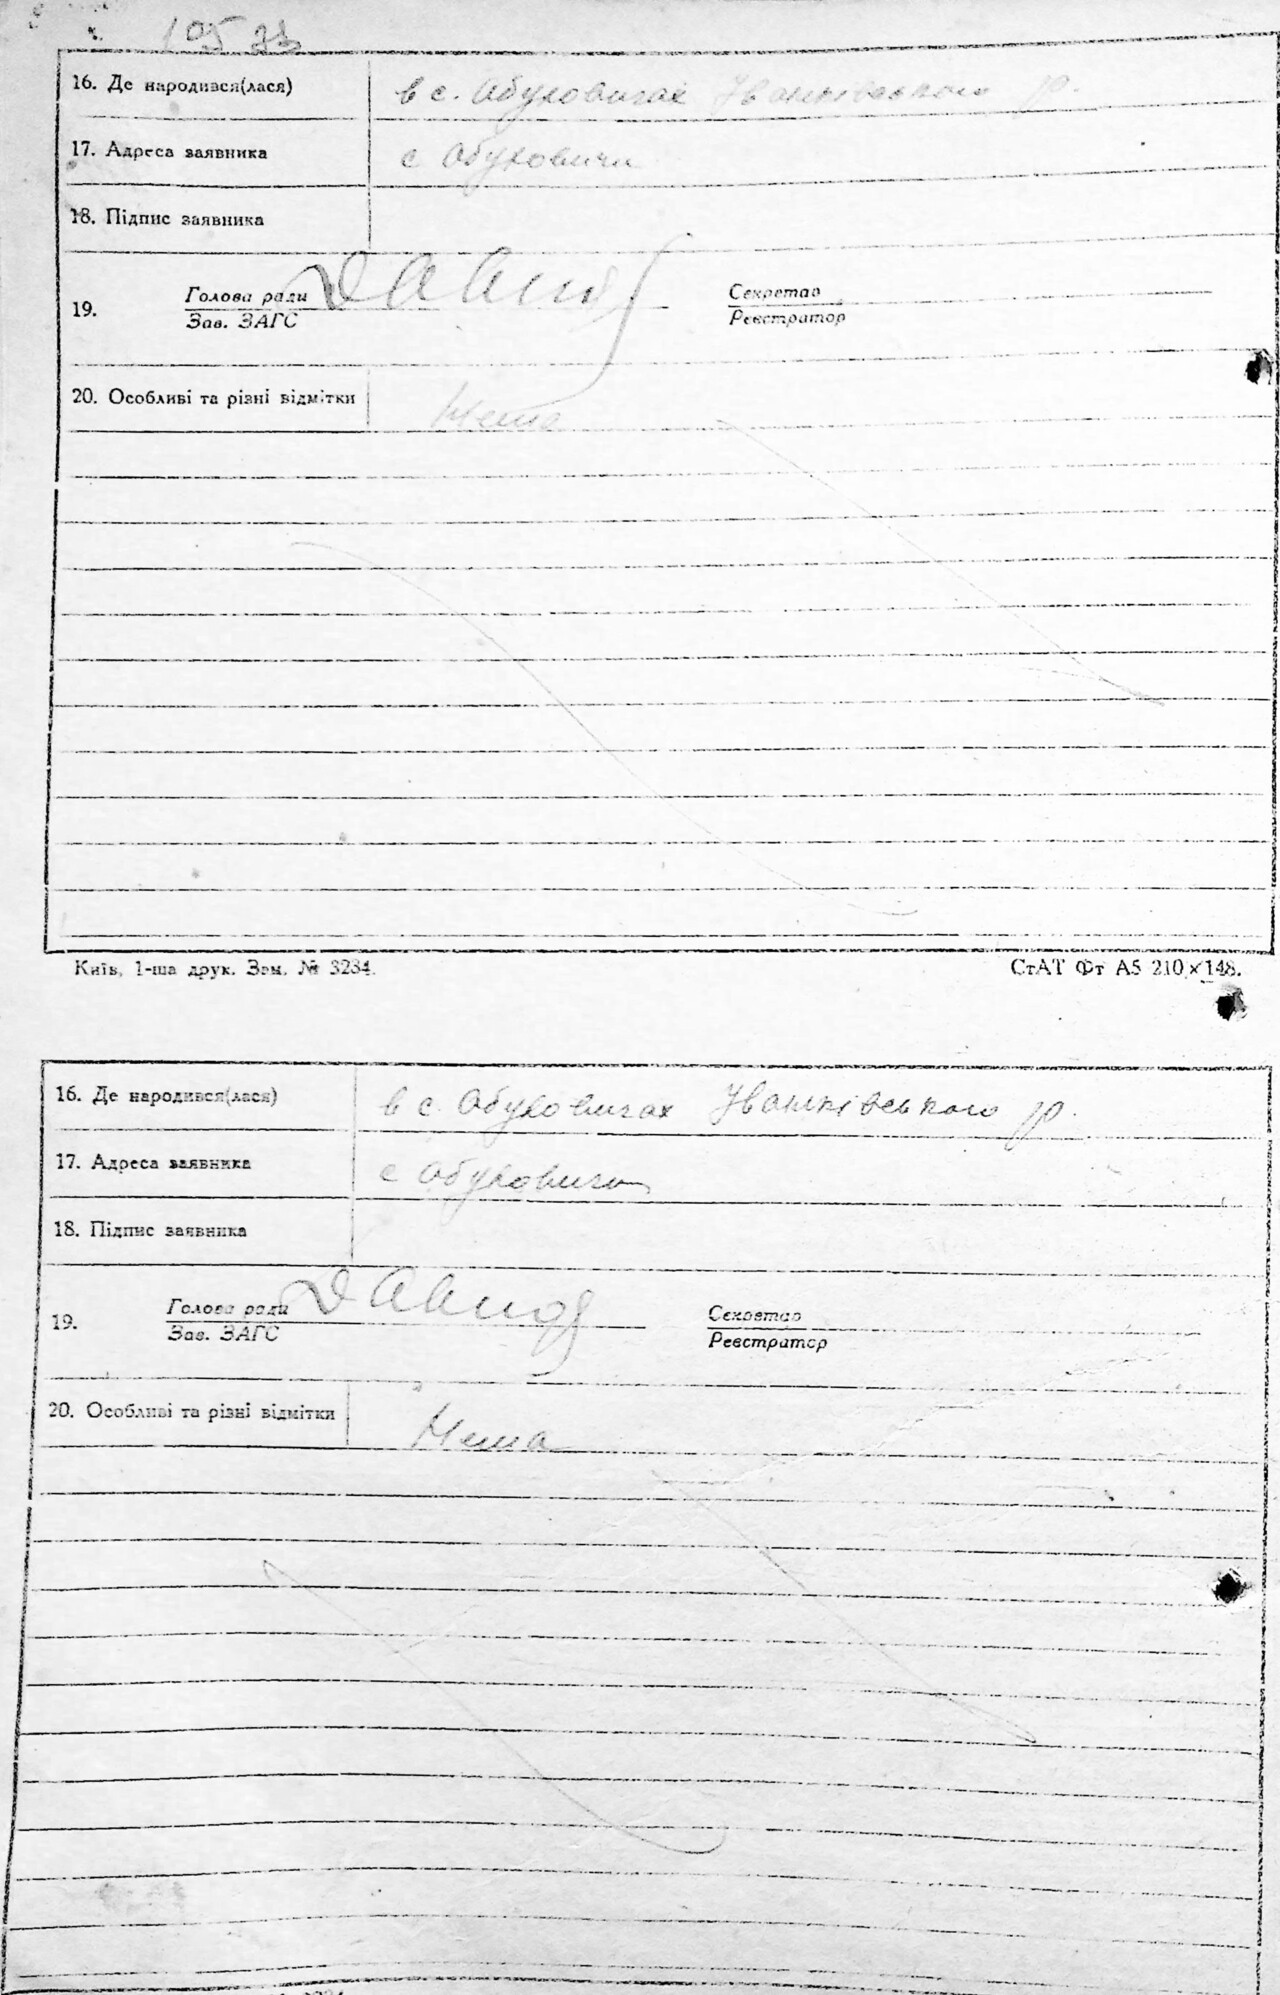 16. Де народився(лася) в с. Обуховичах Іванківського р.
17. Адреса заявника с Обуховичи
18. Підпис заявника
19. Голова ради Секретар
Зав. ЗАГС Реєстратор
20. Особливі та різні відмітки Нема
Київ, 1-ша друк. Зам. № 3234. СтАТ Фт А5 210×148.
16. Де народився(лася) в с. Обуховичах Іванківського р.
17. Адреса заявника с Обуховичи
18. Підпис заявника
19. Голова ради Секретар
Зав. ЗАГС Реєстратор
20. Особливі та різні відмітки Нема